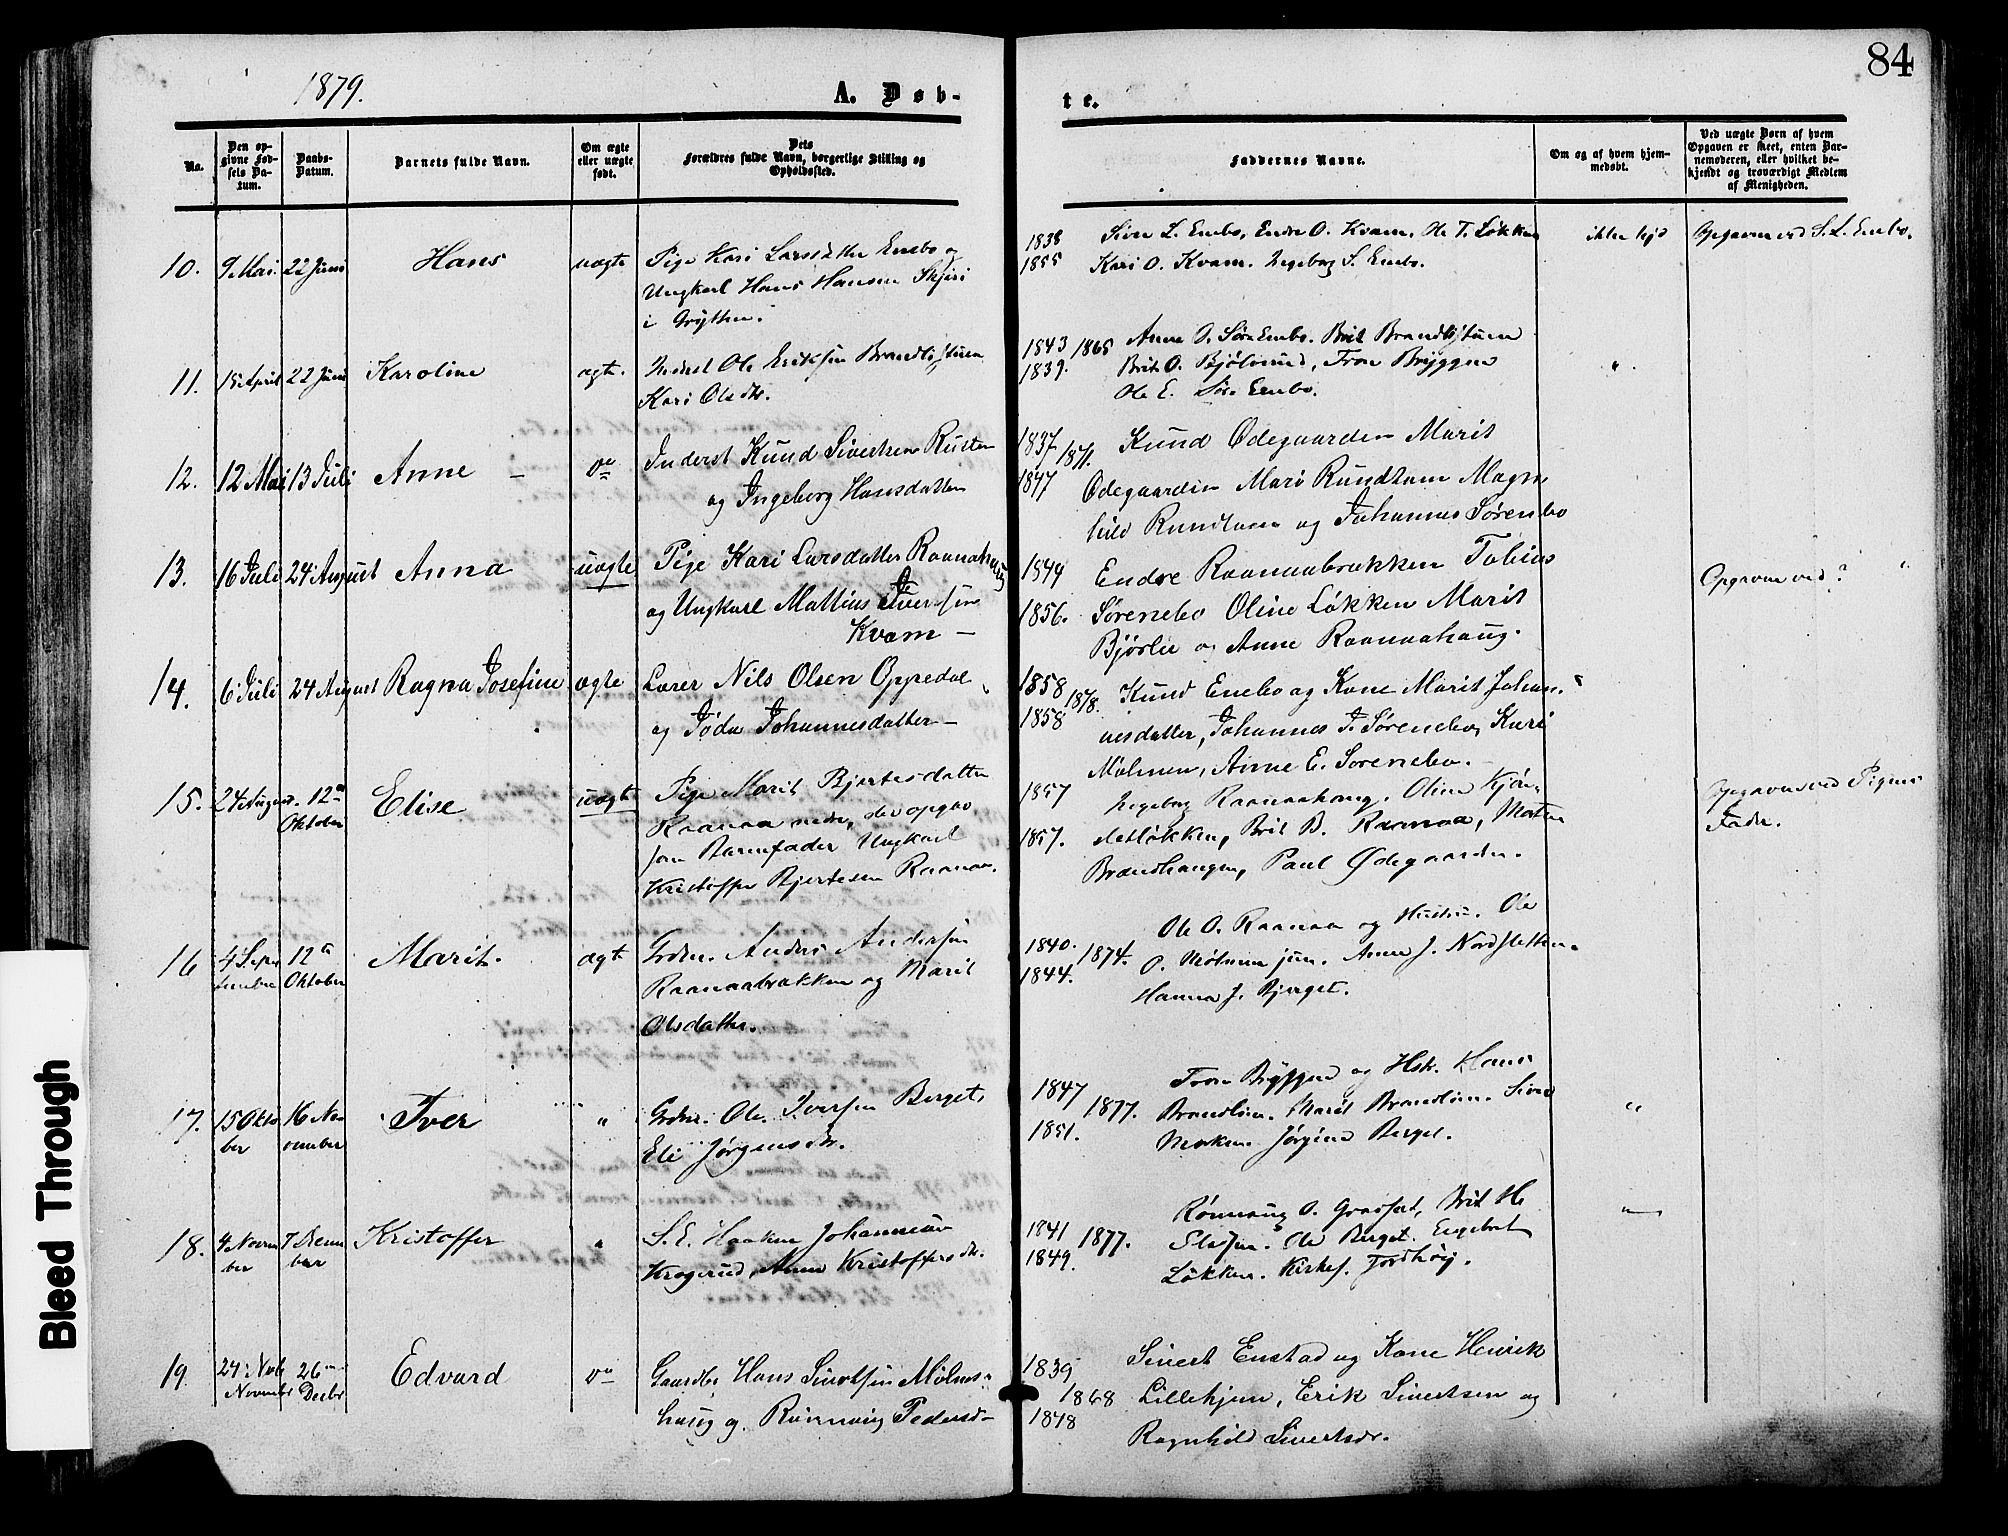 84
1879.
A. Døb-
te.
No.
Den op-
givne Fød-
sels Da-
tum.
Daabs-
Datum.
Barnets fulde Navn.
Om ægte
eller uægte
født.
Dets
Forældres fulde Navn, borgerlige Stilling og
Opholdssted.
Faddernes Navne.
Om og af hvem hjem-
medøbt.
Ved uægte Børn af hvem
Opgaven er skeet, enten Bar-
nemoderen, eller hvilket be-
kjendt og troværdigt Medlem
af Menigheden.
10.
9 Mai.
22 Juni
Hans
uægte
Pige Kari Larsdatter Enebo og
Ungkarl Hans Hansen
i Grytten.
1838
1855
Siver L. Enebo, Endre O. Kvam, Ole T. Løkken
Kari O. Kvam. Ingeborg S. Enebo.
ikke hjd
Opgaven ved S. L. Enebo.
11.
15 April
22 Juni
Karoline
ægte.
Inderst Ole Eriksen Brandlistuen
Kari Olsdtr.
1843
1839.
1865
Anne O. Sørenebo. Brit Brandlistuen
Brit O. Bjølverud, Tron Bryggen
Ole E. Sørenebo.
"
12.
12 Mai
13 Juli
Anne
do
Inderst Knud Sivertsen Rusten
og Ingeborg Hansdatter
1837
1847
1871.
Knud Ødegaarden Marit
Ødegaarden Mari Rundtom Magn
hild Rundtom og Johannes Sørenebo
13.
16 Juli
24 August
Anna
uægte
Pige Kari Larsdatter Raanaahaug
og Ungkarl Mathias Iversen
Kvam
1849
1856.
Endre Raanaabrækken Tobias
Sørenebo Oline Løkken Marit
Bjørlie og Anne Raanaahaug.
Opgaven ved? "
14.
6 Juli
24 August
Ragna Josefine
ægte
Lærer Nils Olsen Oppedal
og Jøda Johannesdatter
1858
1858
1878.
Knud Enebo og Kone Marit Johan-
nesdatter, Johannes J. Sørenebo, Kari
Mølmen, Anne E. Sørenebo.
15.
24 August
12te
Oktober
Elise
uægte
Pige Marit Bjertesdatter
Raanaa nedre, der opgav
som Barnefader Ungkarl
Kristoffer Bjertesen Raanaa.
1857
1857.
Ingeborg Raanaahaug. Oline Kjøn-
sletløkken, Brit B. Raanaa, Morten
Brændhaugen, Paul Ødegaarden.
Opgaven ved Pigens
Fader.
16
4 Sep-
tember
12te
Oktober
Marit.
ægte
Gdbr. Anders Andersen
Raanaabrækken og Marit
Olsdatter.
1840.
1844.
1874.
Ole O. Raanaa og Hustru. Ole
O. Mølmen jun. Anne J. Nordsletten.
Hanna J. Bjerget.
17.
15 Okto
ber
16 No
vember
Iver
"
Gdbr. Ole Iversen Berget,
Eli Jørgensdtr.
1847
1851.
1877.
Tron Bryggen og Hsk. Hans
Brandlien. Marit Brandlien. Siver
Morken. Jørgine Berget.
"
18.
4 Novem
ber
7 Decem
ber
Kristoffer
"
S.E. Haaken Johannesen
Krogerud, Anne Kristoffersdtr.
1841
1849.
1877.
Rønnaug O. Ole Berget. Engebret
Løkken. Kirkes. Jordhøy.
"
19
24 Nov
November
26
Decbr
Edvard
do
Gaardbr Hans Sivertsen Mølmes-
haug og Rønnaug Pedersd
1839
1848
1868
Sivert Enstad og Kone Henrik
Lillehjem, Erik Sivertsen og
Ragnhild Sivertsdr.
Bleed Through